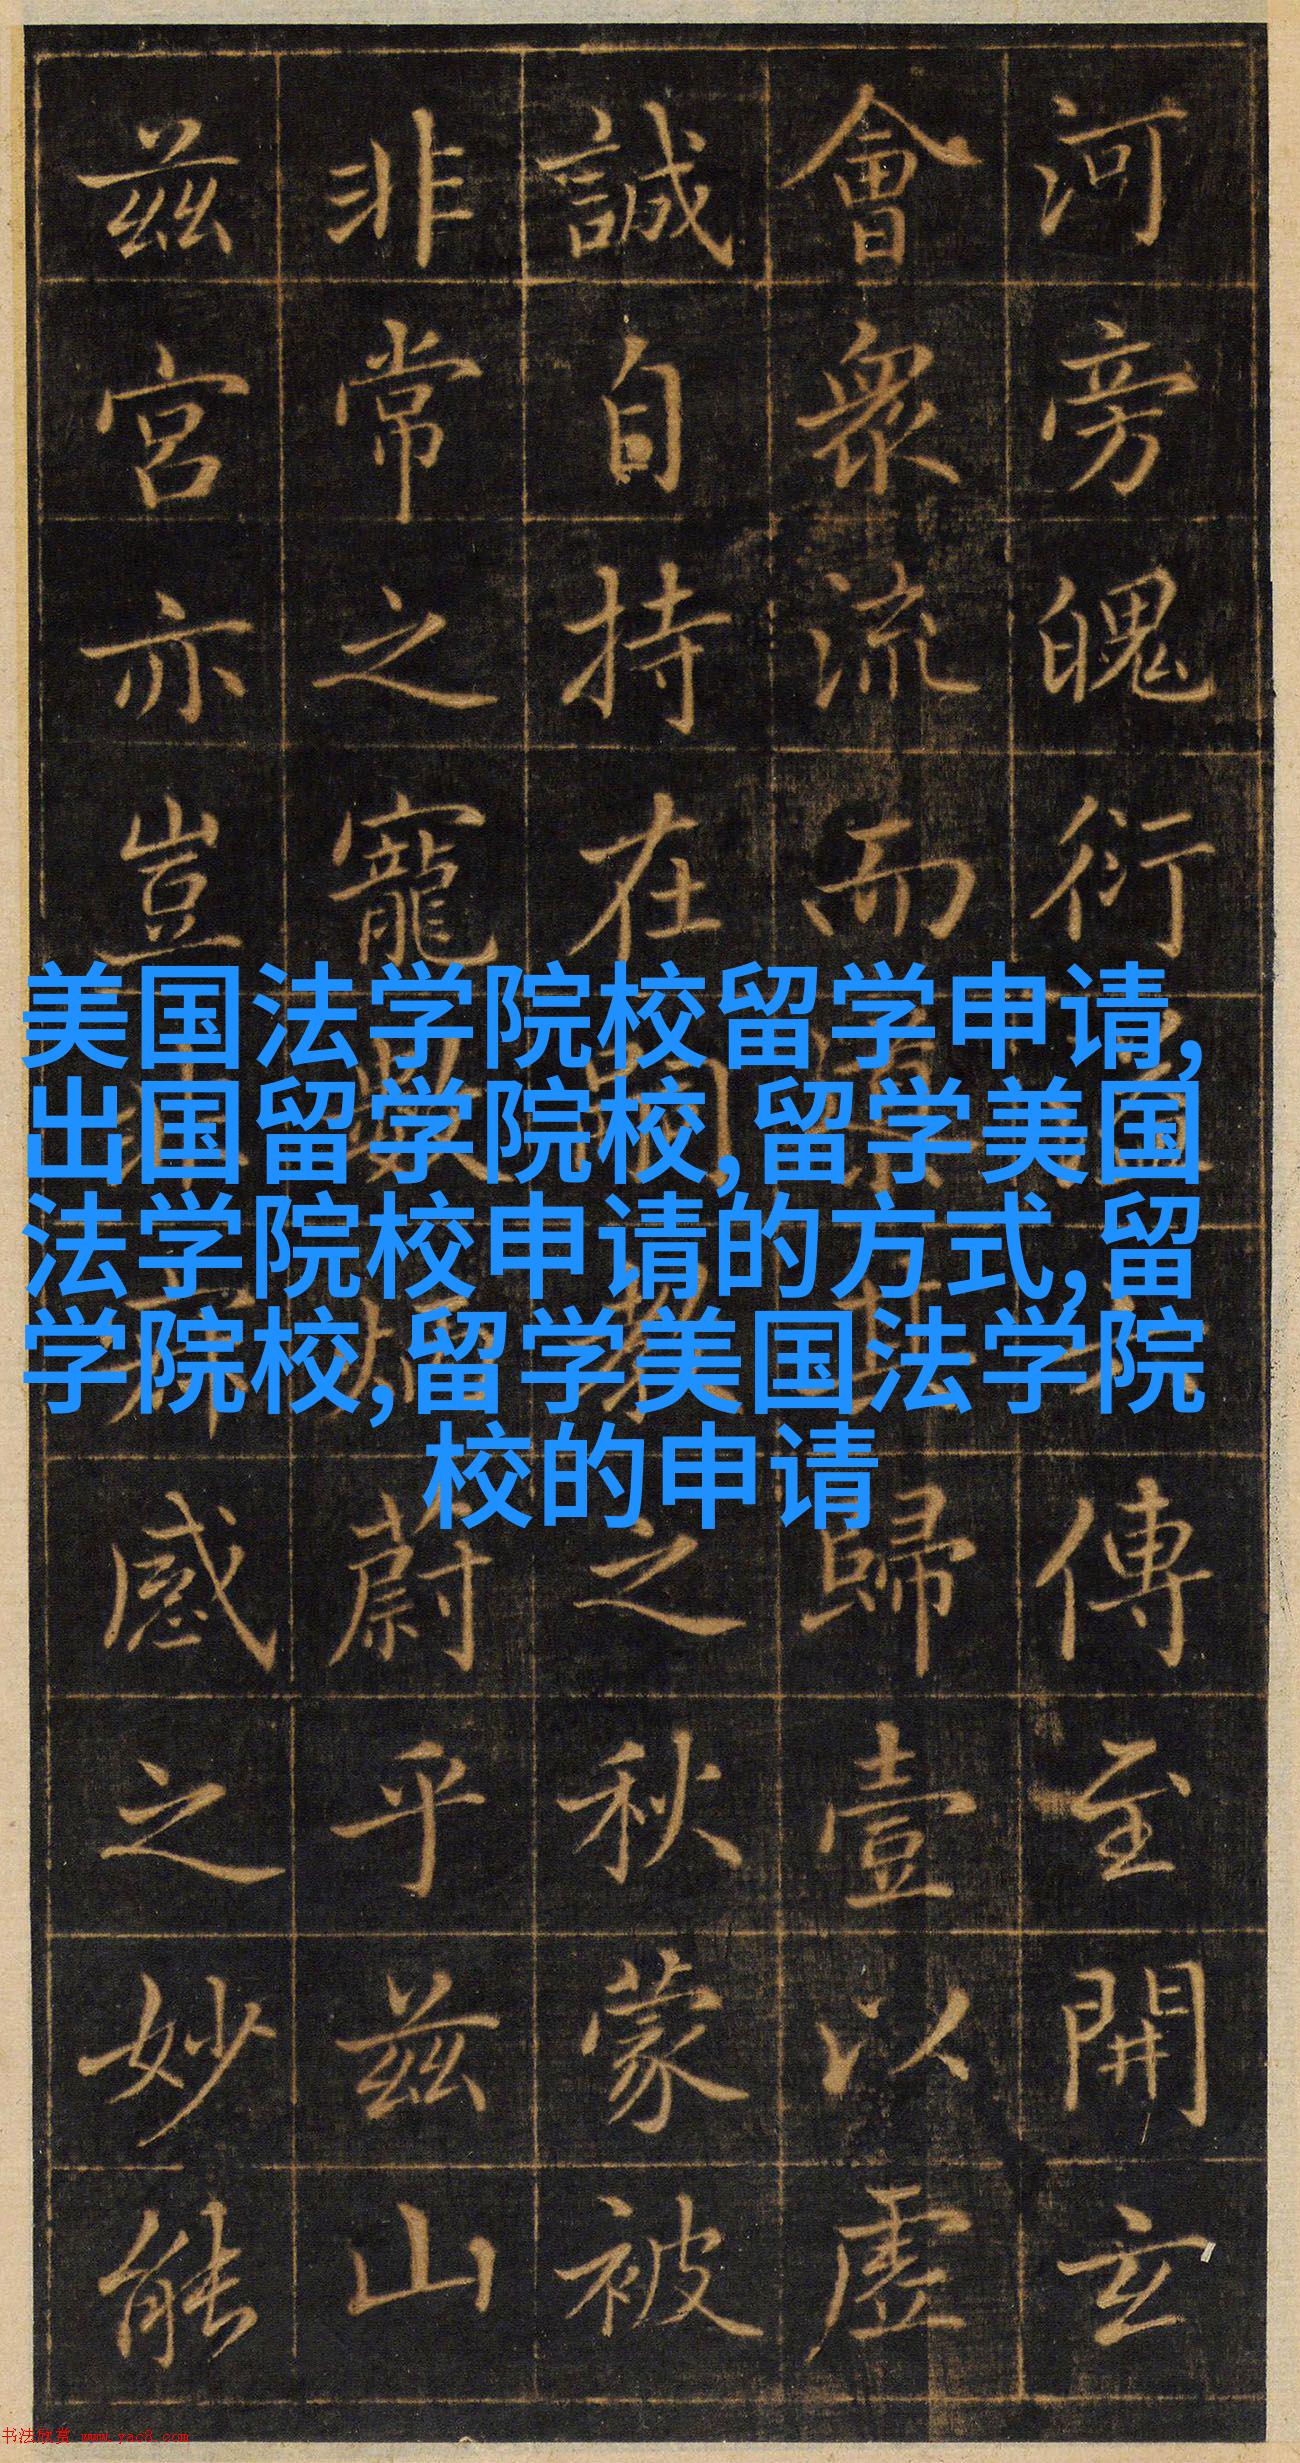 河旁魄衍傳至開玄
會衆流而歸壹以虛
誠自持在之秋蒙被
非常之寵蔚乎兹山
兹宮亦豈感之妙能
美国法学院校留学申请,
出国留学院校,留学美国
法学院校申请的方式,留
学院校,留学美国法学院
校的申请
书法欣赏 www.yac8.com